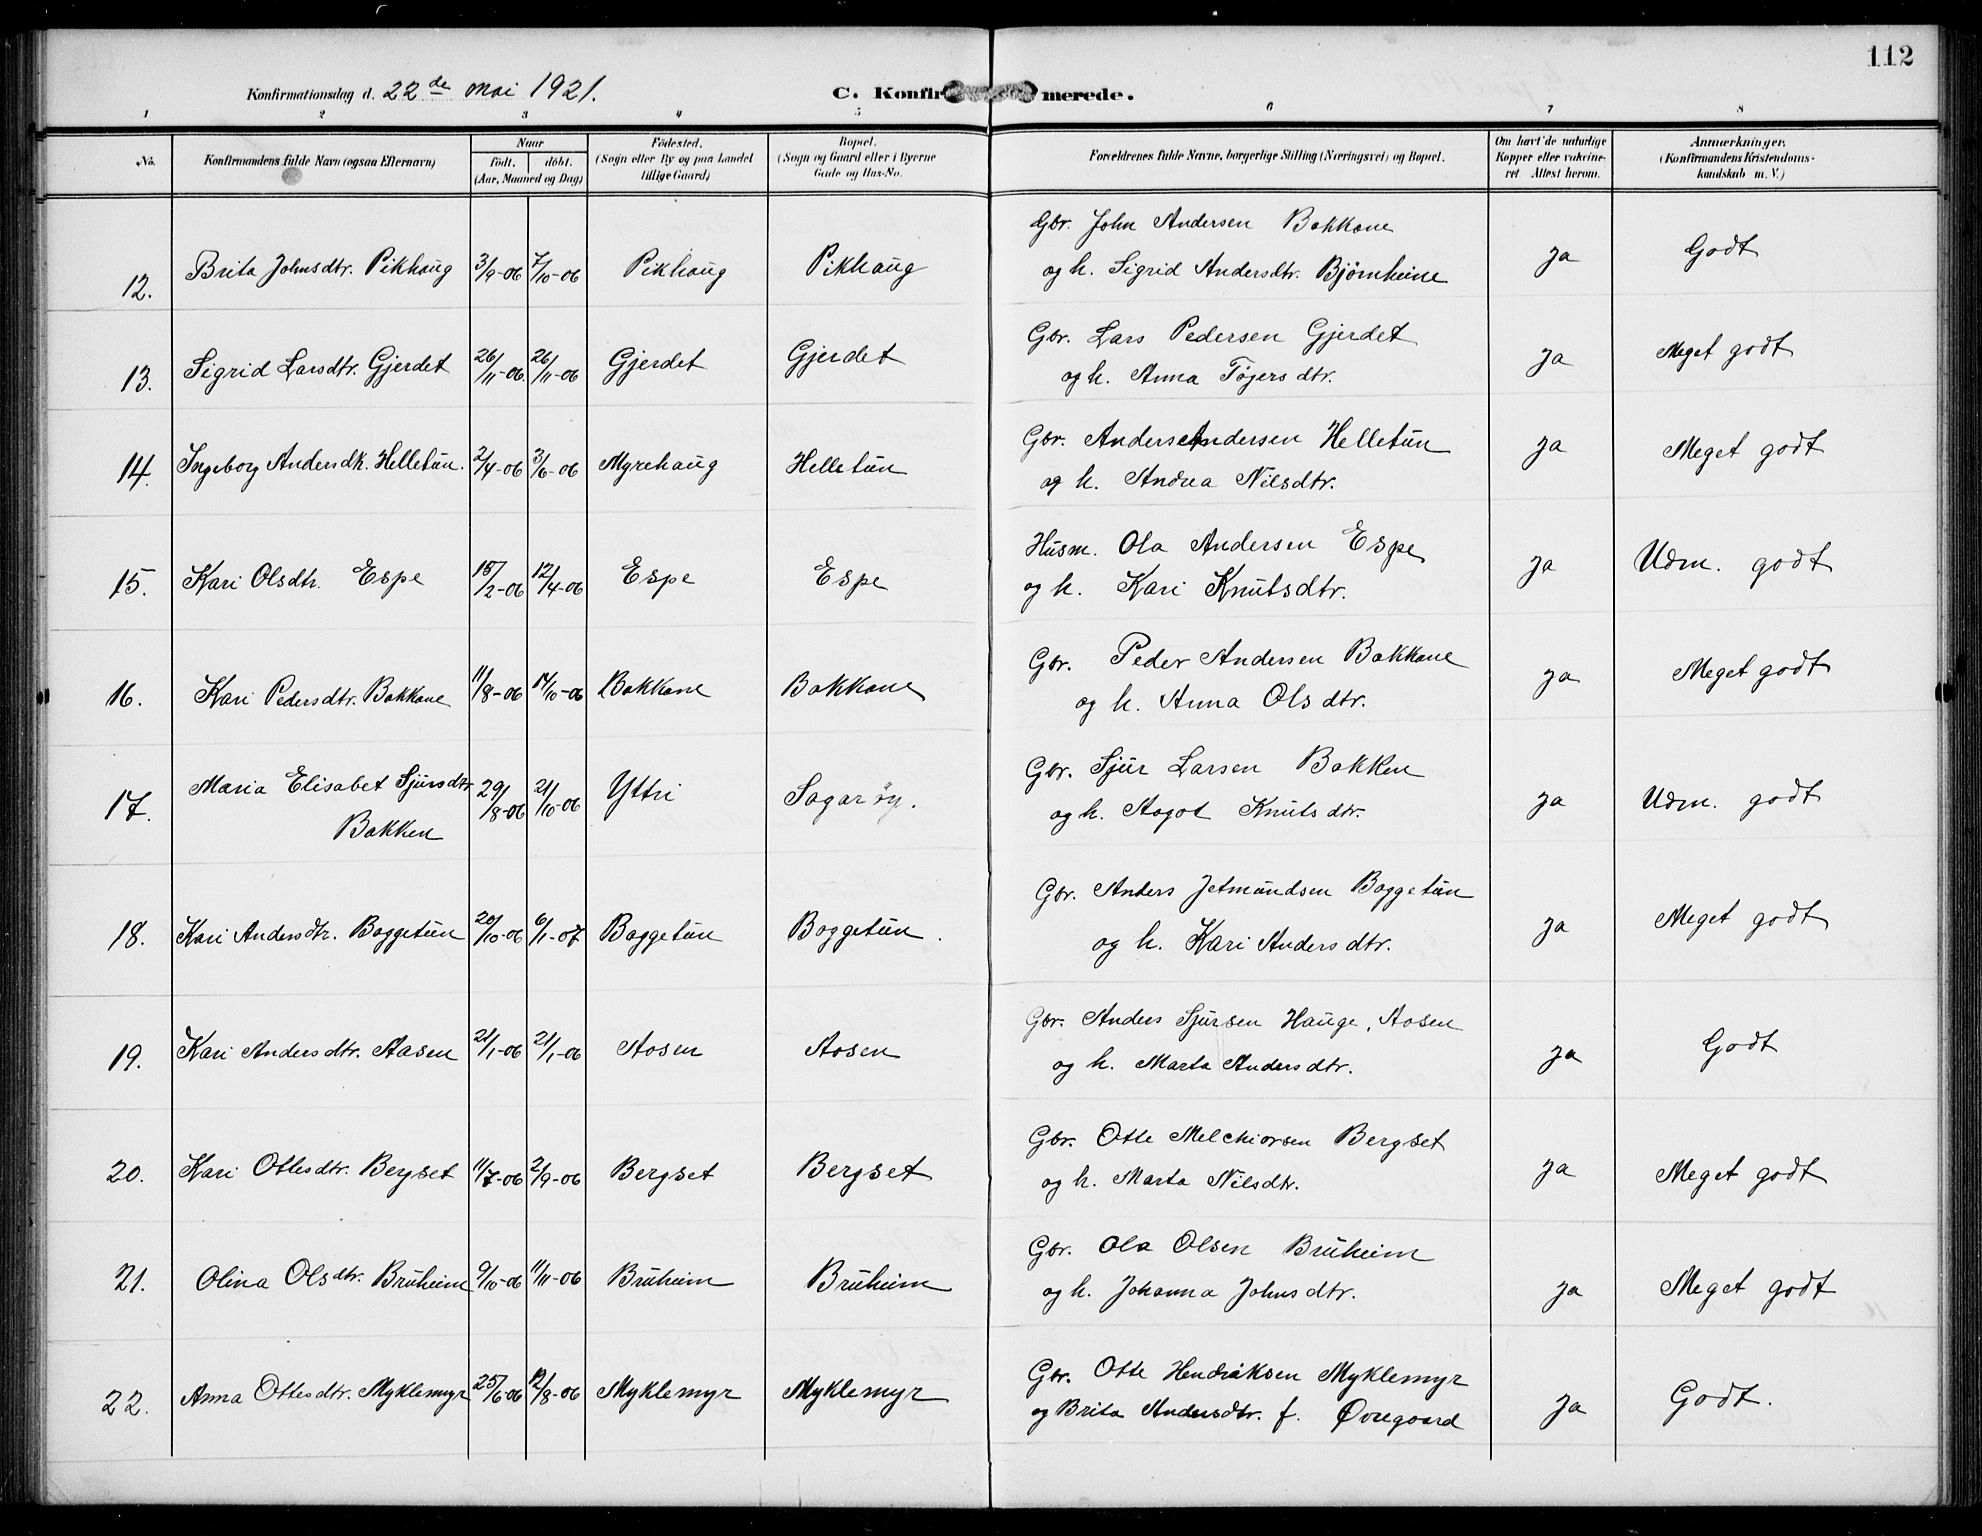 112
Konfirmationsdag d. 22de mai 1921. C. Konfir merede.
1 2 3 4 5 6 7 8
No. Konfirmandens fulde Navn (ogsaa Efternavn) Naar födt. döbt. (Aar, Maaned og Dag) Födested. (Sogn eller By og paa Landet tillige Gaard) Bopæl. (Sogn og Gaard eller i Byerne Gade og Hus-No. Forældrenes fulde Navne, borgerlige Stilling (Næringsvei) og Bopæl. Om havt de naturlige Kopper eller vakcineret. Attest herom. Anmærkninger. (Konfirmandens Kristendomskundskab m. V.)
12. Brita Johnsdtr. Pikhaug 3/9-06 7/10-06 Pikhaug Pikhaug Gbr. John Andersen Bakkane ja Godt
og h. Sigrid Andersdtr. Bjørnheine
13. Sigrid Larsdtr. Gjerdet 26/11-06 26/11-06 Gjerdet Gjerdet Gbr. Lars Pedersen Gjerdet ja Meget godt
og h. Anna Tøgersdtr.
14. Ingeborg Andersdtr. Helletun. 2/4-06 3/6-06 Myrehaug Helletun Gbr. Anders Andersen Helletun ja Meget godt
og h. Andrea Nilsdtr.
15. Kari Olsdtr. Espe 15/2-06 12/4-06 Espe Espe Husm. Ola Andersen Espe ja Udm. godt
og h. Kari Knutsdtr.
16. Kari Pedersdtr. Bakkane 11/8-06 14/10-06 Bakkane Bakkane Gbr. Peder Andersen Bakkane ja Meget godt
og h. Anna Olsdtr.
17. Maria Elisabet Sjursdtr. 29/8-06 21/10-06 Yttri Sagarøy. Gbr. Sjur Larsen Bakken ja Udm. godt
Bakken og h. Aagot Knutsdtr.
18. Kari Andersdtr. Baggetun 20/10-06 6/1-07 Baggetun Baggetun. Gbr. Anders Jetmundsen Baggetun ja Meget godt
og h. Kari Andersdtr.
19. Kari Andersdtr. Aasen 21/1-06 21/1-06 Aasen Aasen Gbr. Anders Sjursen Hauge, Aasen ja Godt
og h. Marta Andersdtr.
20. Kari Ottesdtr. Bergset 11/7-06 2/9-06 Bergset Bergset Gbr. Otte Melchiorsen Bergset ja Meget godt
og h. Marta Nilsdtr.
21. Olina Olsdtr. Bruheim 9/10-06 11/11-06 Bruheim Bruheim Gbr. Ola Olsen Bruheim ja Meget godt
og h. Johanna Johnsdtr.
22. Anna Ottesdtr. Myklemyr 25/6-06 12/8-06 Myklemyr Myklemyr Gbr. Otte Hendriksen Myklemyr ja Godt.
og Brita Andersdtr. f. Øvregaard